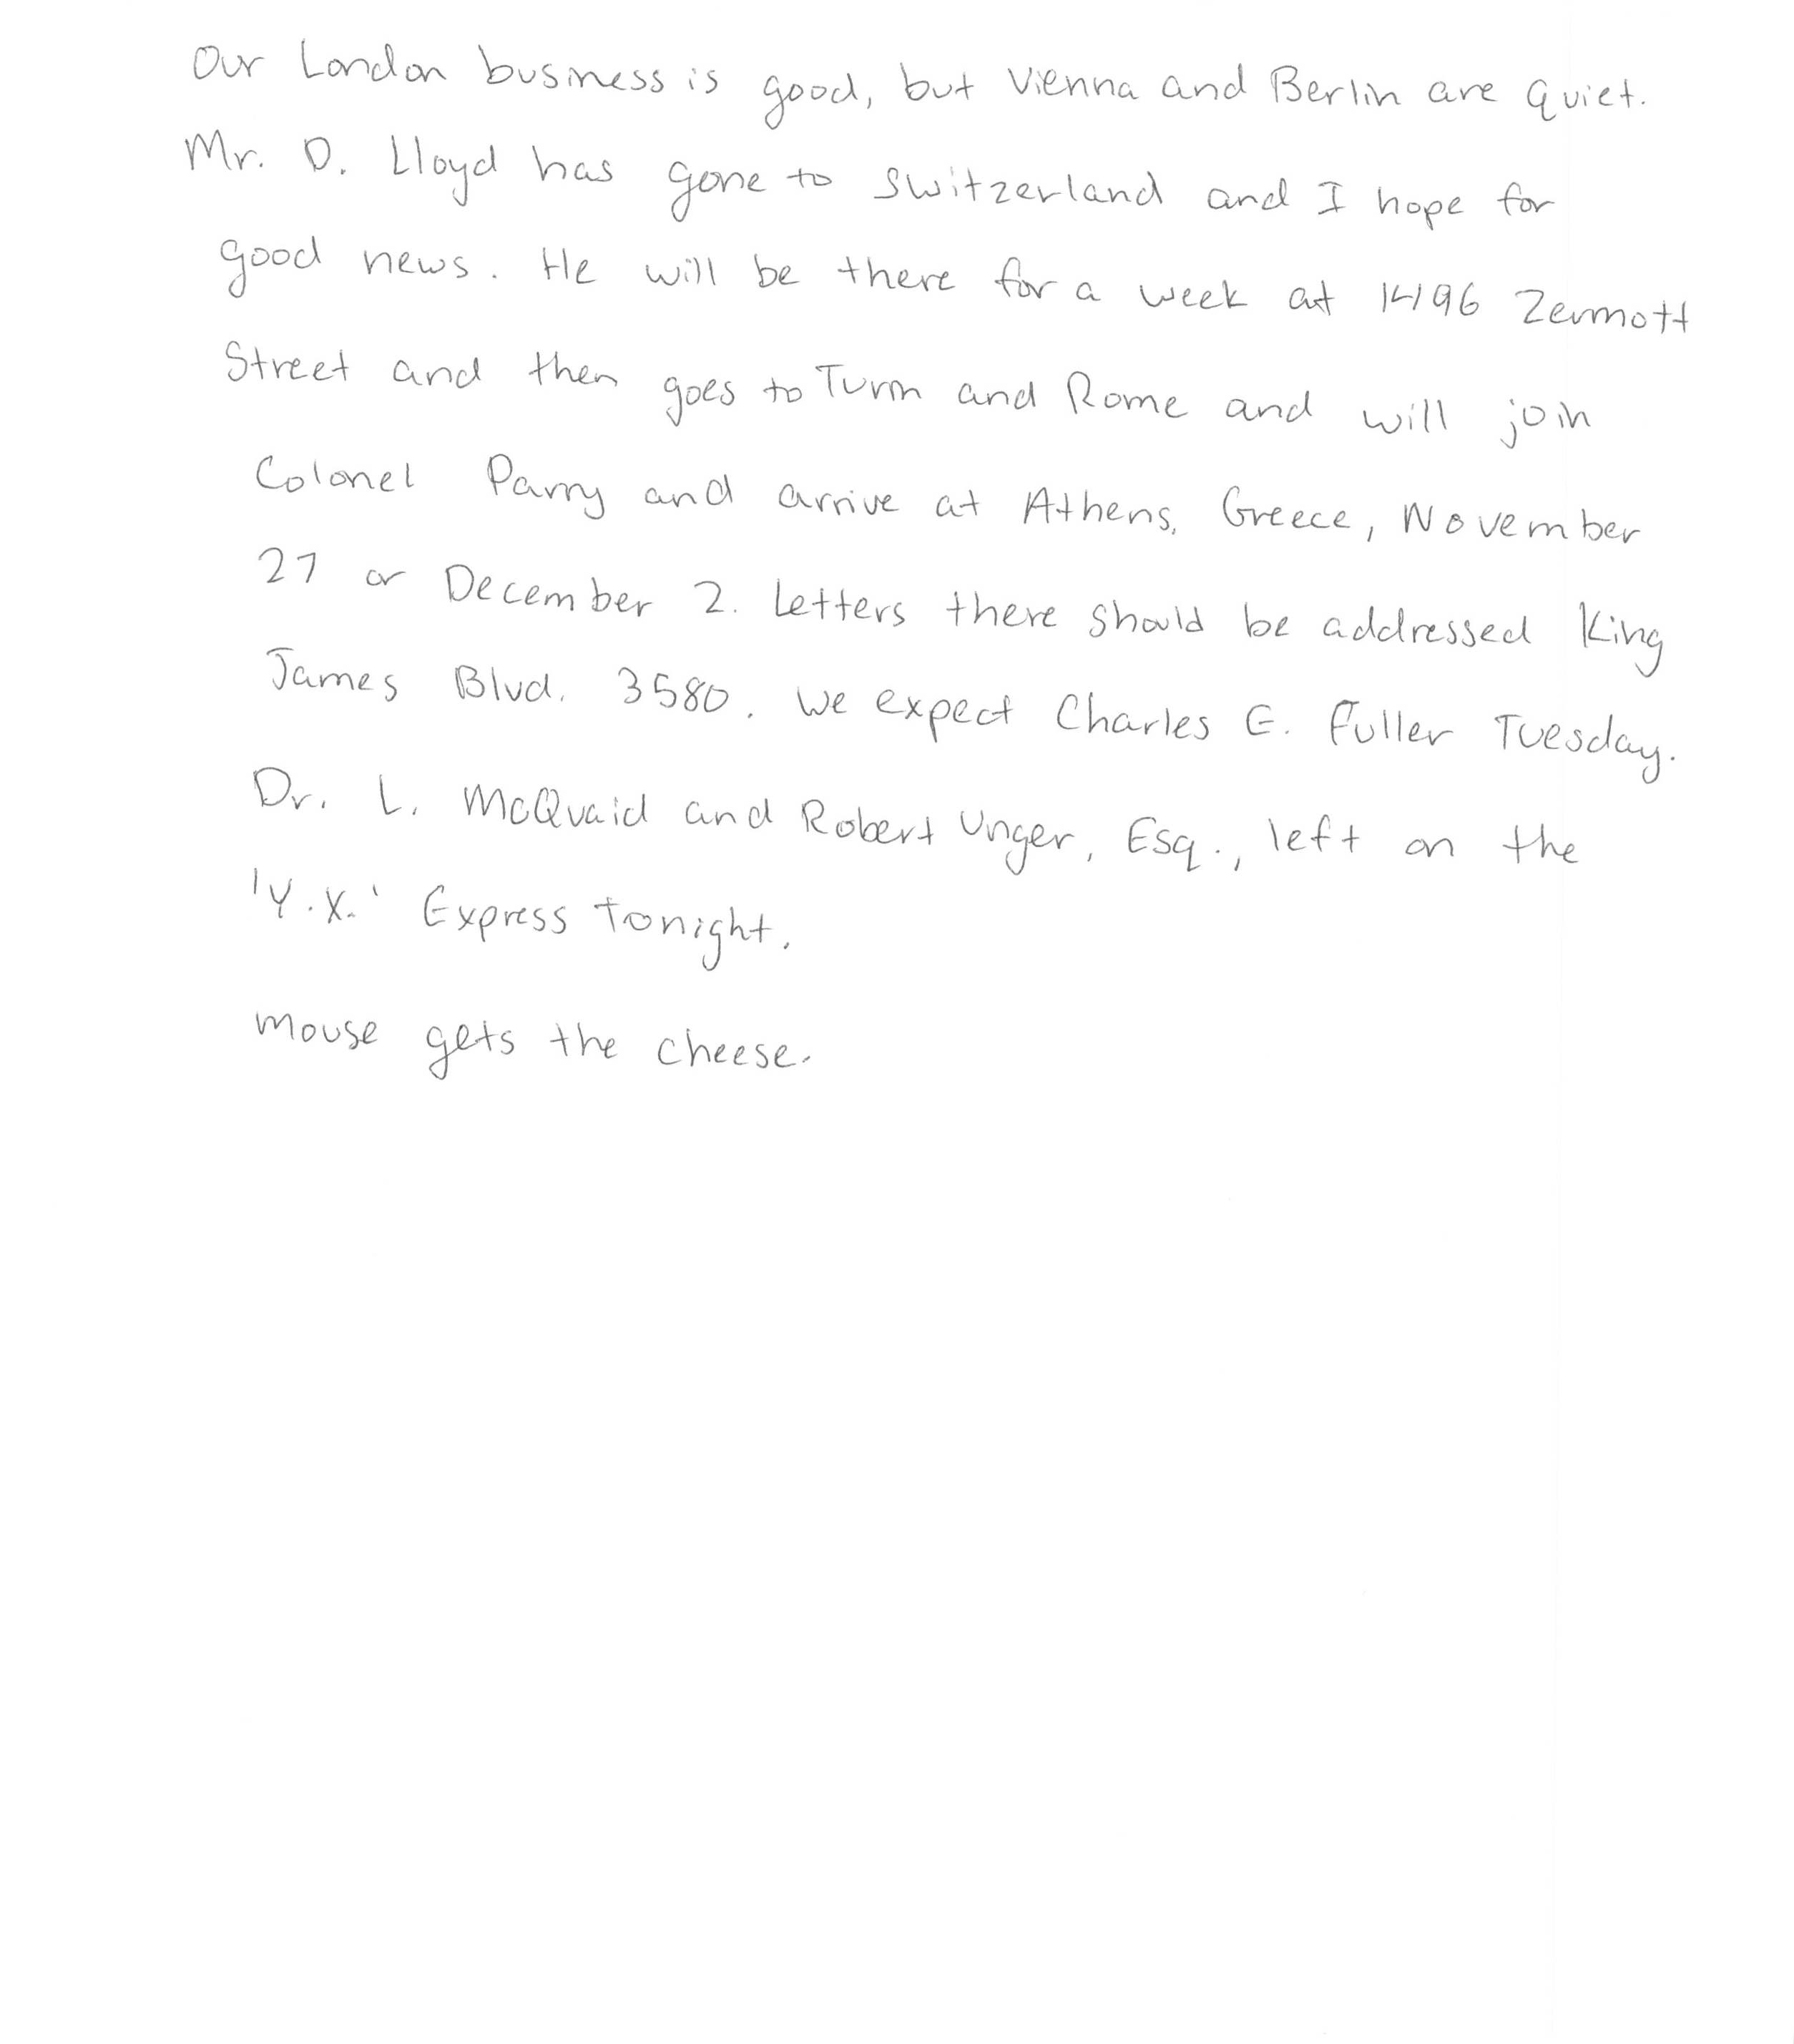 Our London business is good, but Vienna and Berlin are quiet.
Mr. D. Lloyd has gone to Switzerland and I hope for
good news. He will be there for a week at 1496 Zermott
Street and then goes to Turin and Rome and will join
Colonel Parry and arrive at Athens, Greece, November
27 or December 2. Letters there should be addressed King
James Blvd. 3580. We expect Charles E. Fuller Tuesday.
Dr. L. McQuaid and Robert Unger, Esq., left on the
'Y.X.' Express tonight.
mouse gets the cheese.